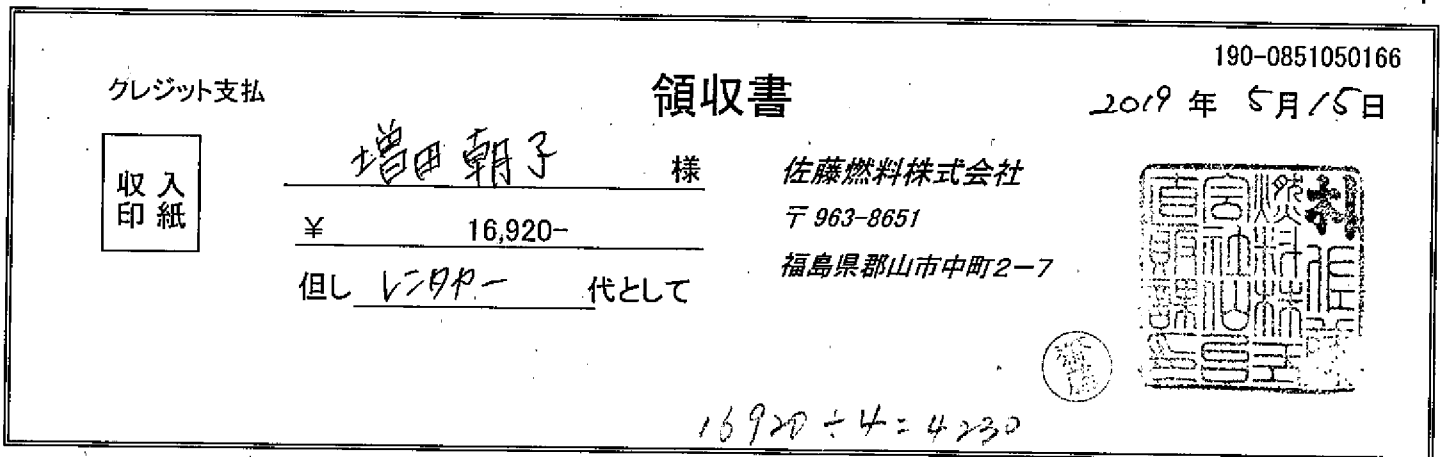 190-0851050166
クレジット支払
領収書
2019 年 5月15日
収入
印紙
増田朝子 様
¥ 16,920-
但し レンタカー 代として
佐藤燃料株式会社
〒963-8651
福島県郡山市中町2-7
16920÷4=4230